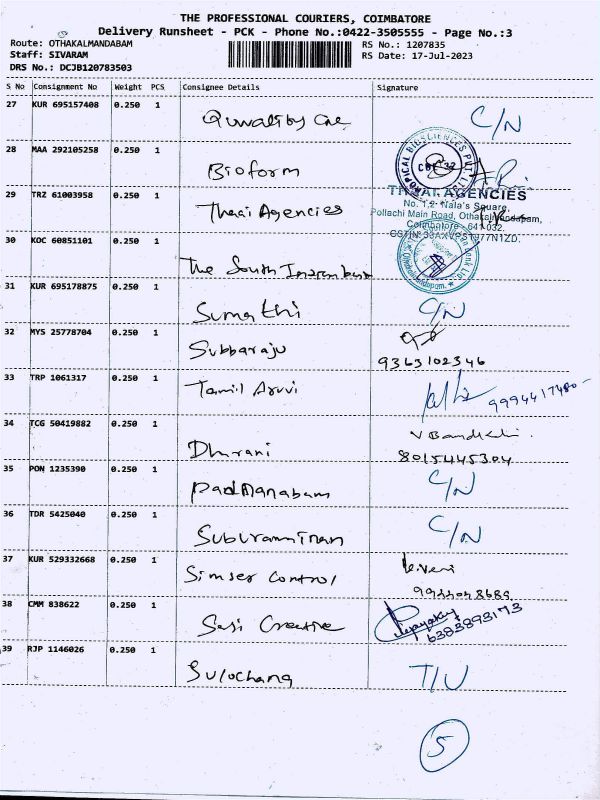 THE PROFESSIONAL COURIERS, COIMBATORE
Delivery Runsheet - PCK - Phone No.:0422-3505555 - Page No.:3
Route: OTHAKALMANDABAM RS No.: 1207835
Staff: SIVARAM RS Date: 17-Jul-2023
DRS No.: DCJB120783503
S No Consignment No Weight PCS Consignee Details Signature
27 KUR 695157408 0.250 1 C/N
28 MAA 292105258 0.250 1 Bioform
29 TRZ 61003958 0.250 1 Thaai Agencies
THAAI AGENCIES
No. 1,2 Nala's Square,
Pollachi Main Road, Othakalmandapam,
Coimbatore - 641 032.
30 KOC 60851101 0.250 1 The South
31 KUR 695178875 0.250 1 Sumathi C/N
32 MYS 25778704 0.250 1 Subbaraju
9363102346
33 TRP 1061317 0.250 1 Tamil Aruvi
9994417480
34 TCG 50419882 0.250 1 Dharani
8015445304
35 PON 1235390 0.250 1 Padmanabam C/N
36 TDR 5425040 0.250 1 C/N
37 KUR 529332668 0.250 1 Simser Control
38 CMM 838622 0.250 1 Sasi Creative
6383893173
39 RJP 1146026 0.250 1 Sulochana T/U
5